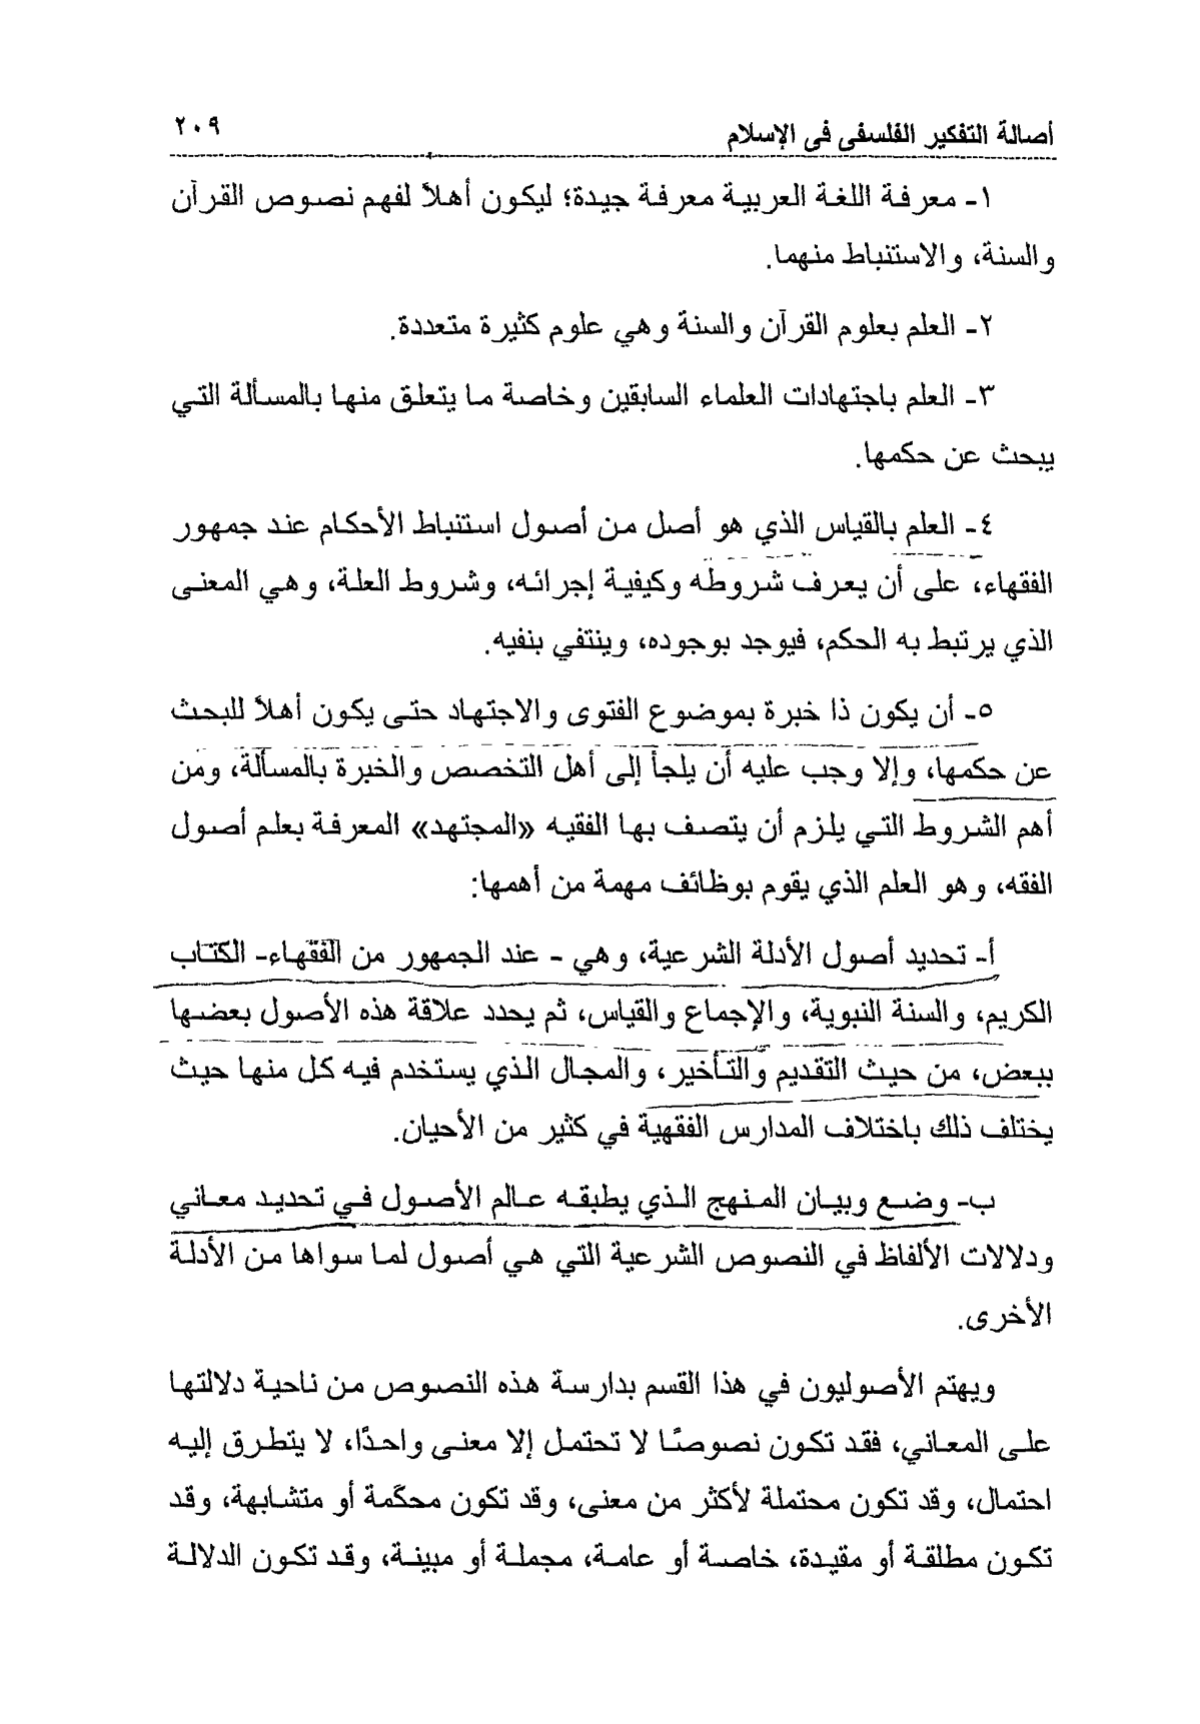 أصالة التفكير الفلسفى فى الإسلام ٢٠٩
١- معرفة اللغة العربية معرفة جيدة؛ ليكون أهلاً لفهم نصوص القرآن
والسنة، والاستنباط منهما.
٢- العلم بعلوم القرآن والسنة وهي علوم كثيرة متعددة.
٣- العلم باجتهادات العلماء السابقين وخاصة ما يتعلق منها بالمسألة التي
يبحث عن حكمها.
٤- العلم بالقياس الذي هو أصل من أصول استنباط الأحكام عند جمهور
الفقهاء، على أن يعرف شروطه وكيفية إجرائه، وشروط العلة، وهي المعنى
الذي يرتبط به الحكم، فيوجد بوجوده، وينتفي بنفيه.
٥- أن يكون ذا خبرة بموضوع الفتوى والاجتهاد حتى يكون أهلاً للبحث
عن حكمها، وإلا وجب عليه أن يلجأ إلى أهل التخصص والخبرة بالمسألة، ومن
أهم الشروط التي يلزم أن يتصف بها الفقيه «المجتهد» المعرفة بعلم أصول
الفقه، وهو العلم الذي يقوم بوظائف مهمة من أهمها:
أ- تحديد أصول الأدلة الشرعية، وهي - عند الجمهور من الفقهاء- الكتاب
الكريم، والسنة النبوية، والإجماع والقياس، ثم يحدد علاقة هذه الأصول بعضها
ببعض، من حيث التقديم والتأخير، والمجال الذي يستخدم فيه كل منها حيث
يختلف ذلك باختلاف المدارس الفقهية في كثير من الأحيان.
ب- وضع وبيان المنهج الذي يطبقه عالم الأصول في تحديد معاني
ودلالات الألفاظ في النصوص الشرعية التي هي أصول لما سواها من الأدلة
الأخرى.
ويهتم الأصوليون في هذا القسم بدارسة هذه النصوص من ناحية دلالتها
على المعاني، فقد تكون نصوصًا لا تحتمل إلا معنى واحدًا، لا يتطرق إليه
احتمال، وقد تكون محتملة لأكثر من معنى، وقد تكون محكمة أو متشابهة، وقد
تكون مطلقة أو مقيدة، خاصة أو عامة، مجملة أو مبينة، وقد تكون الدلالة